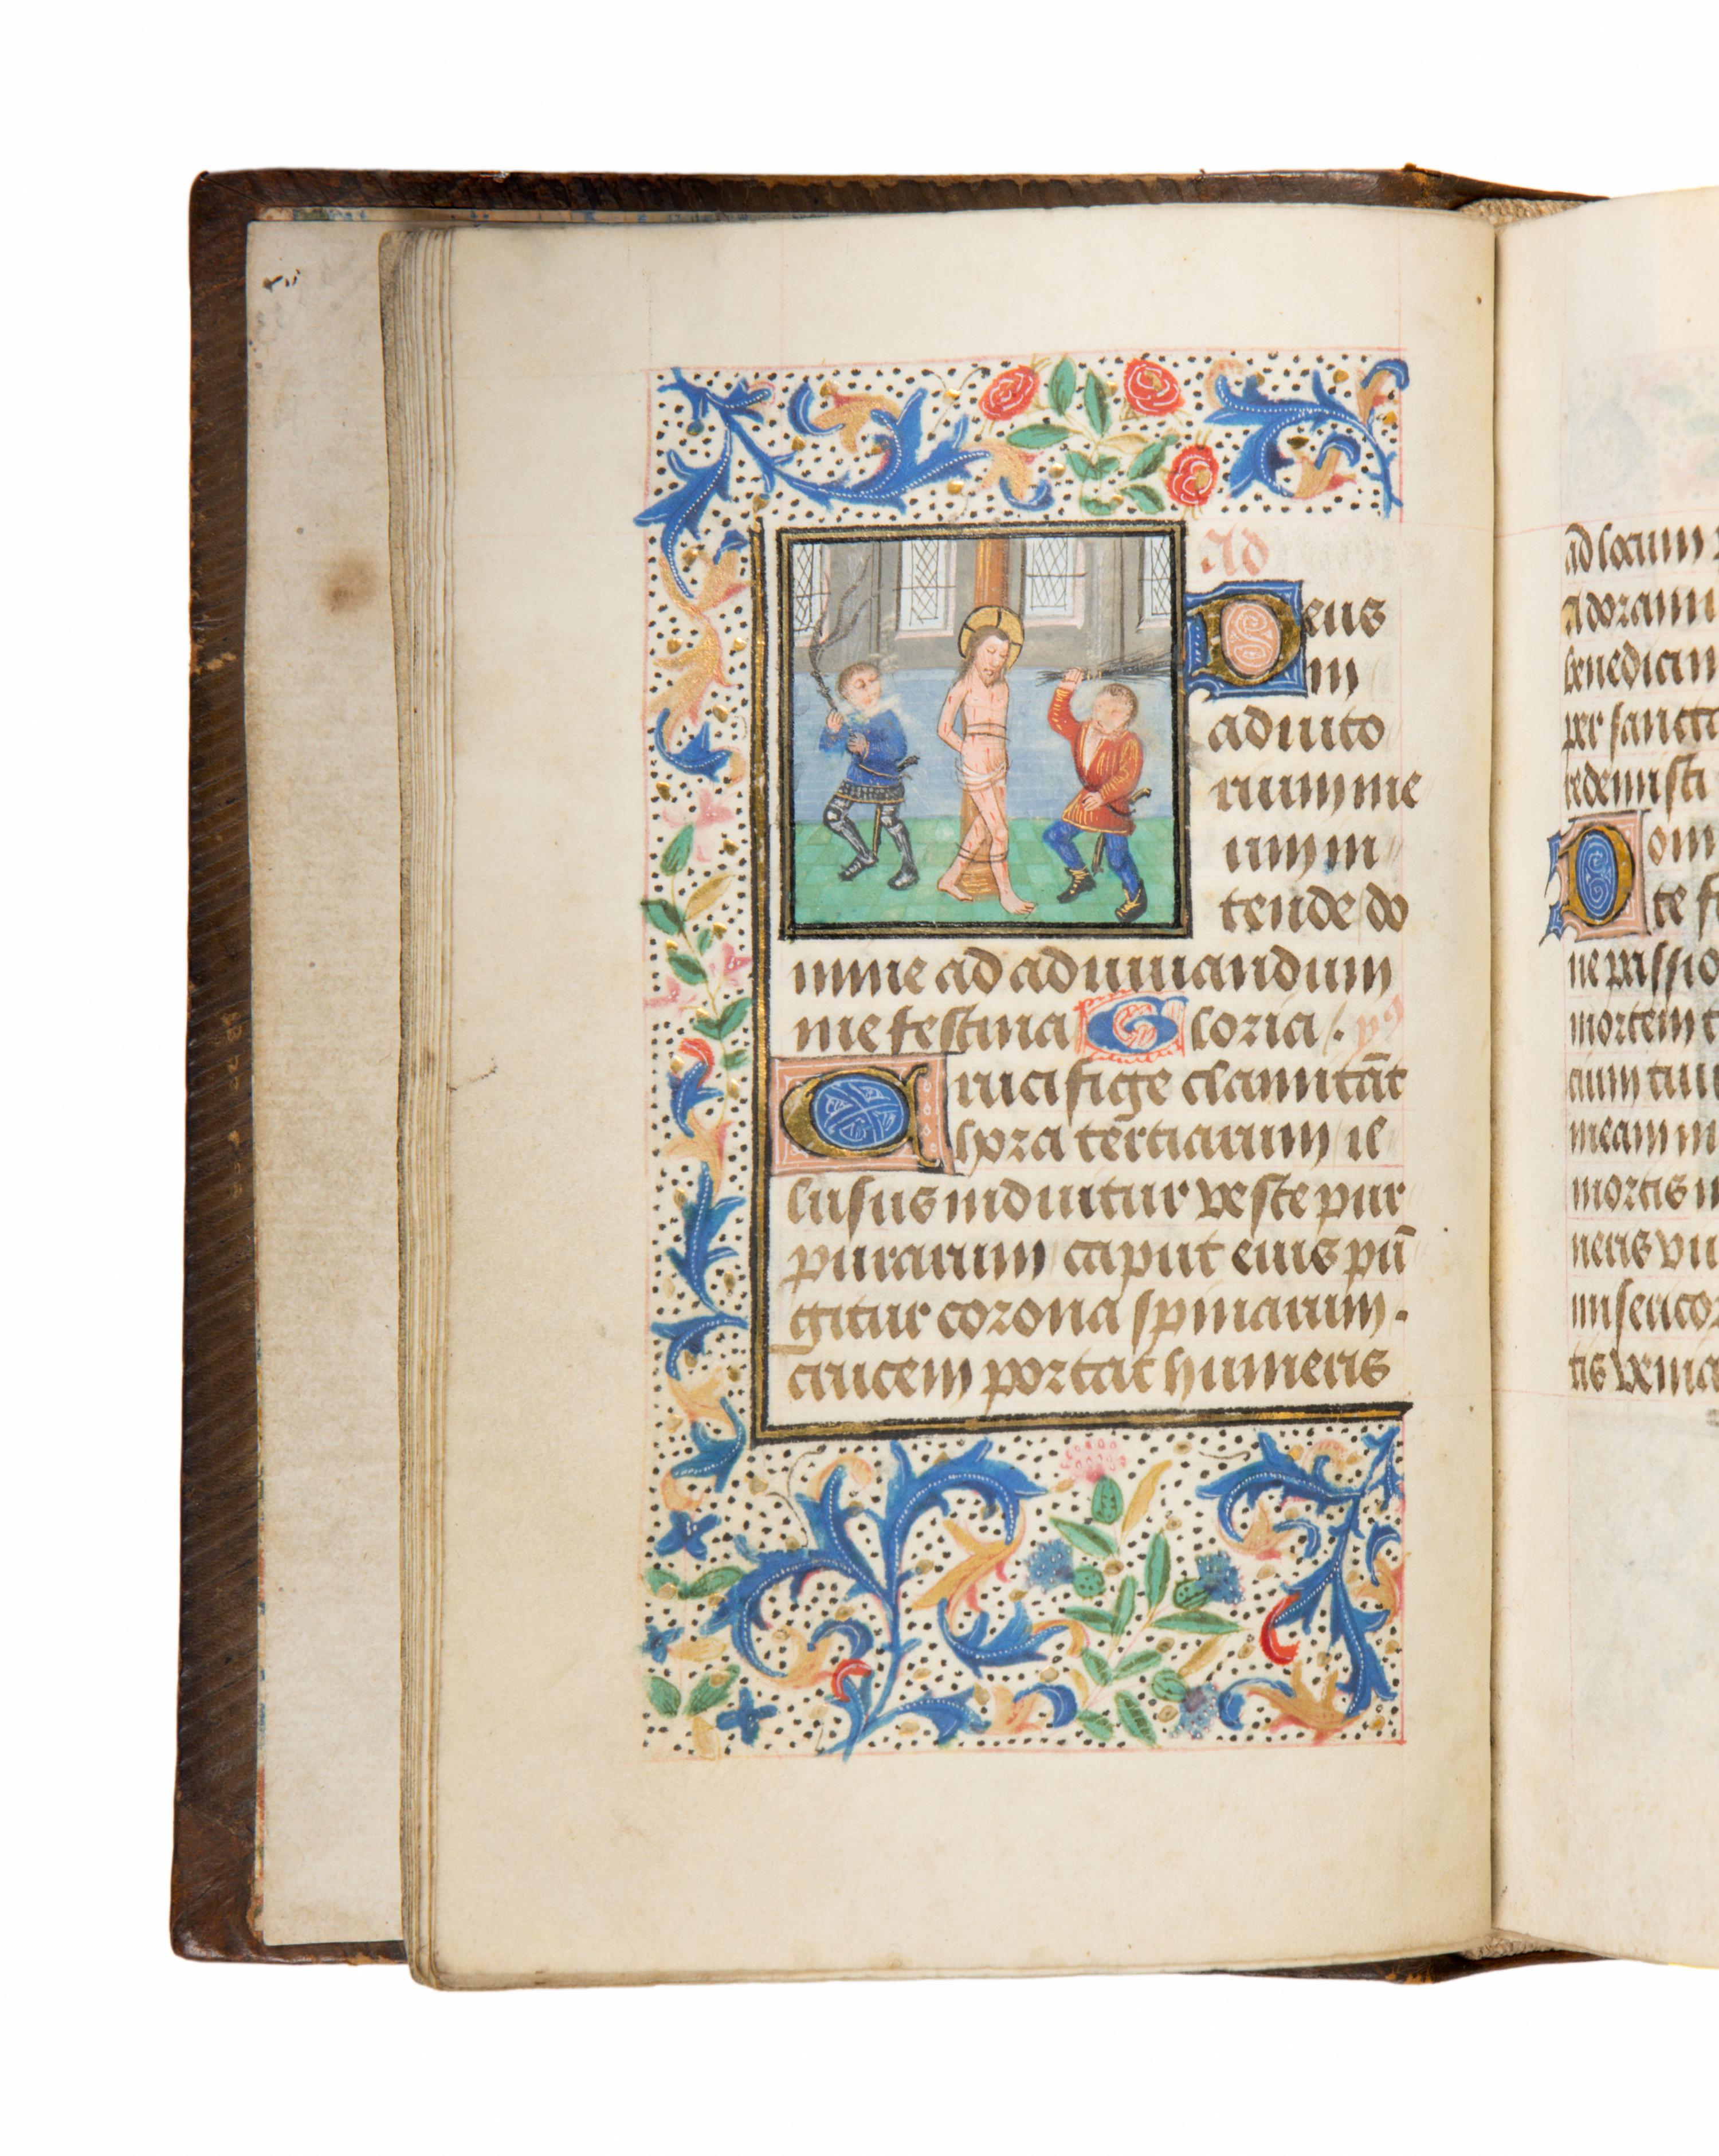 Ad
Deus
in
adiuto
rium me
um in
tende do
mine ad adiuuandum
me festina Gloria . yͫⁿ
Crucifige clamitāt
hora tertiarum il
lusus induitur veste pur
purarum caput eius pū
gitur corona spinarum .
crucem portat humeris
ad locum
adoram
benedicim
per sancta
redemisti
Dom
te fi
ne passio
mortem t
cium tuu
meam
mortis
neris vi
misericor
tis